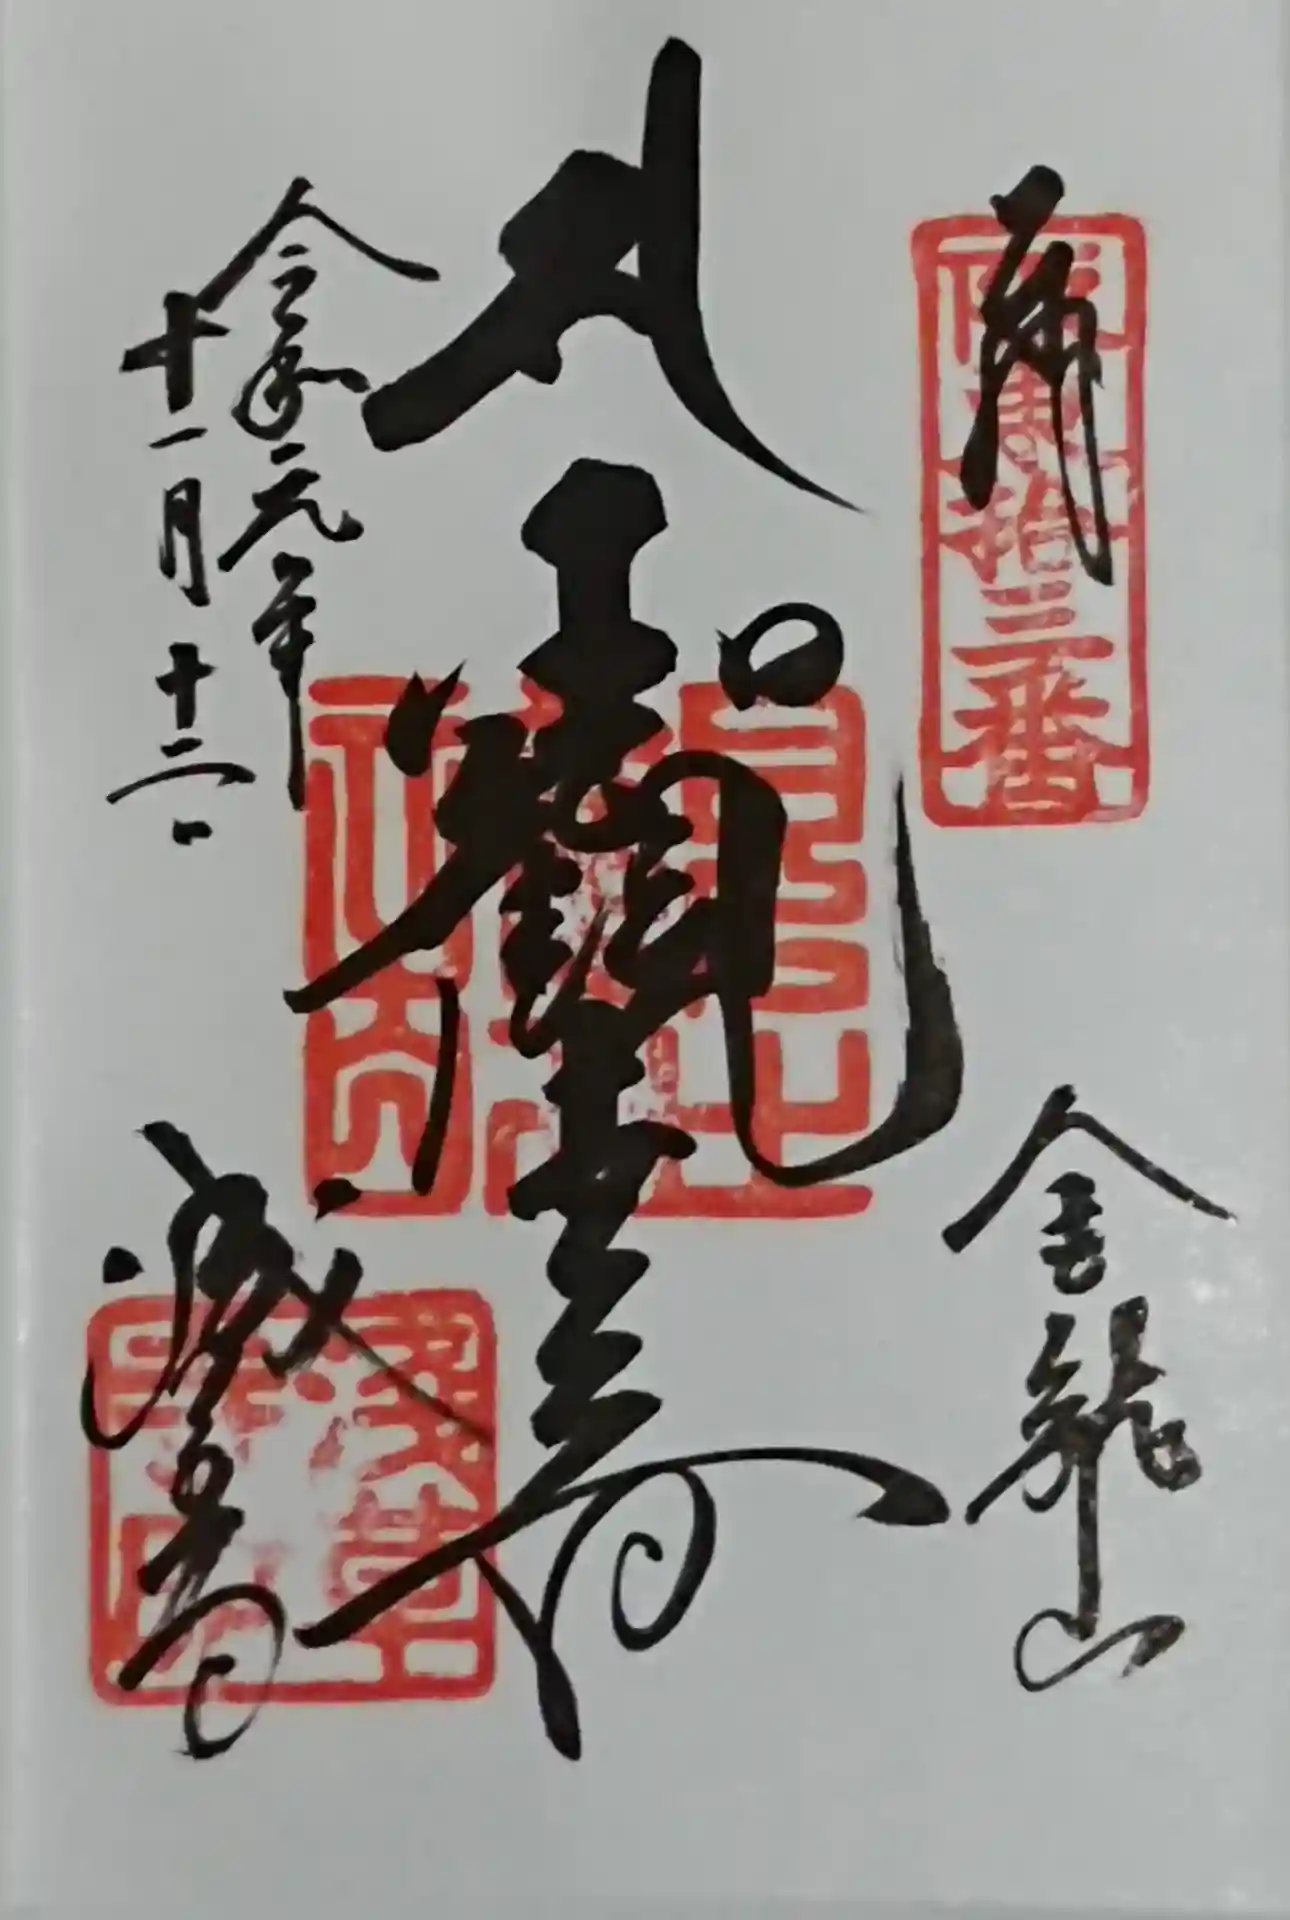 奉拝
坂東拾三番
金龍山
聖観世音
令和元年
十一月十二日
浅草寺